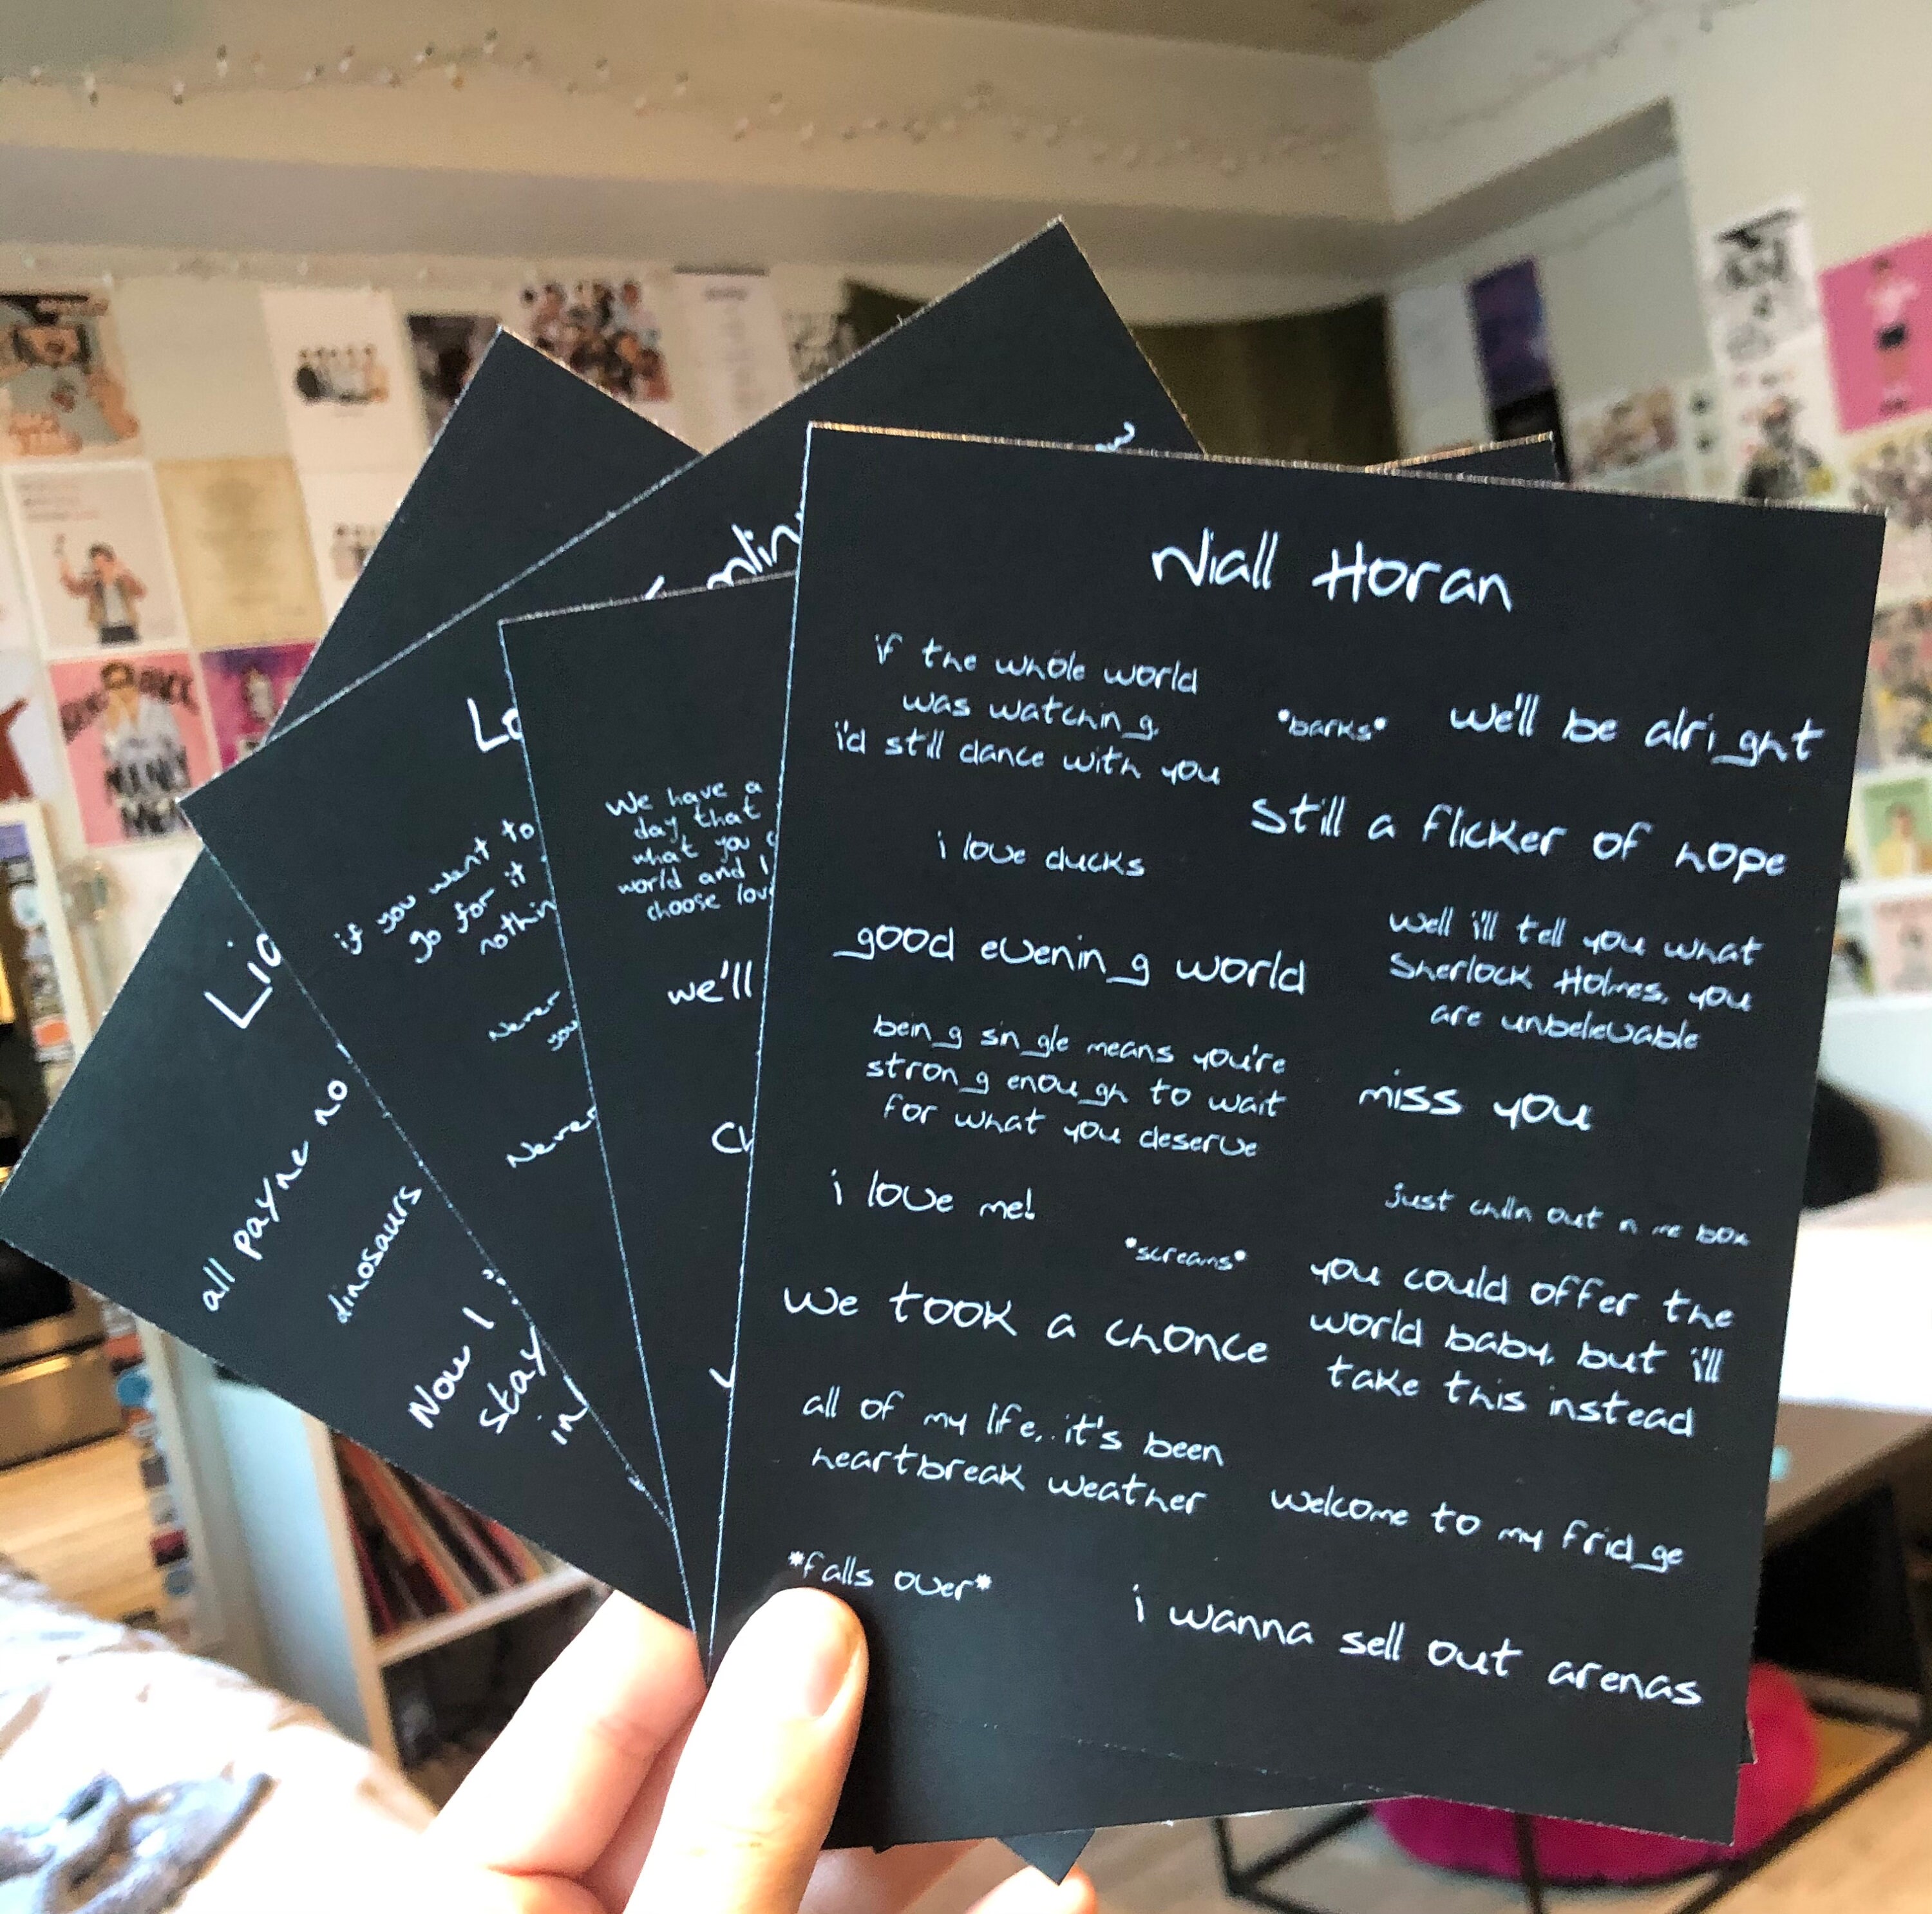 Niall Horan
if the whole world
was watching,
i'd still dance with you
*barks*
we'll be alright
still a flicker of hope
i love ducks
well i'll tell you what
Sherlock Holmes, you
are unbelievable
good evening world
being single means you're
strong enough to wait
for what you deserve
miss you
i love me!
just chlln out n me box
*screams*
you could offer the
world baby, but i'll
take this instead
we took a chonce
all of my life, it's been
heartbreak weather
welcome to my fridge
*falls over*
i wanna sell out arenas
We have a
day, that
what you
world and I
choose
we'll
if you want to
go for it
Never
you
Never
all payne no
dinosaurs
Now I
stay
in